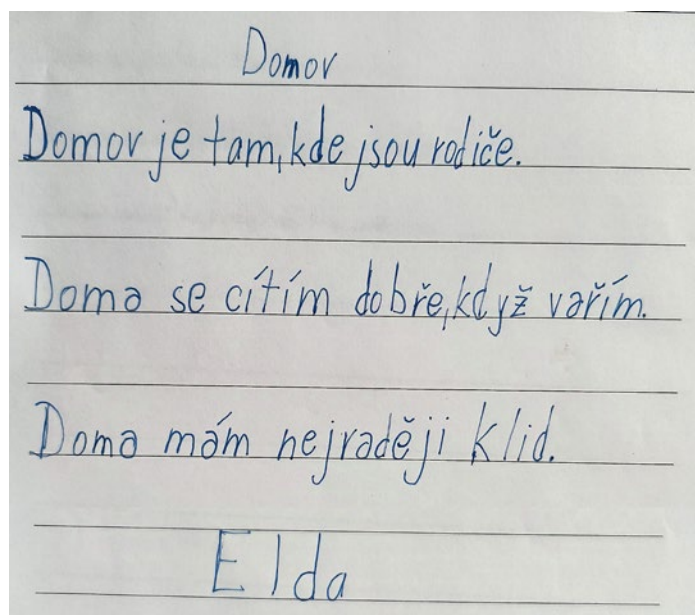 Domov
Domov je tam, kde jsou rodiče.
Doma se cítím dobře, když vařím.
Doma mám nejraději klid.
Elda